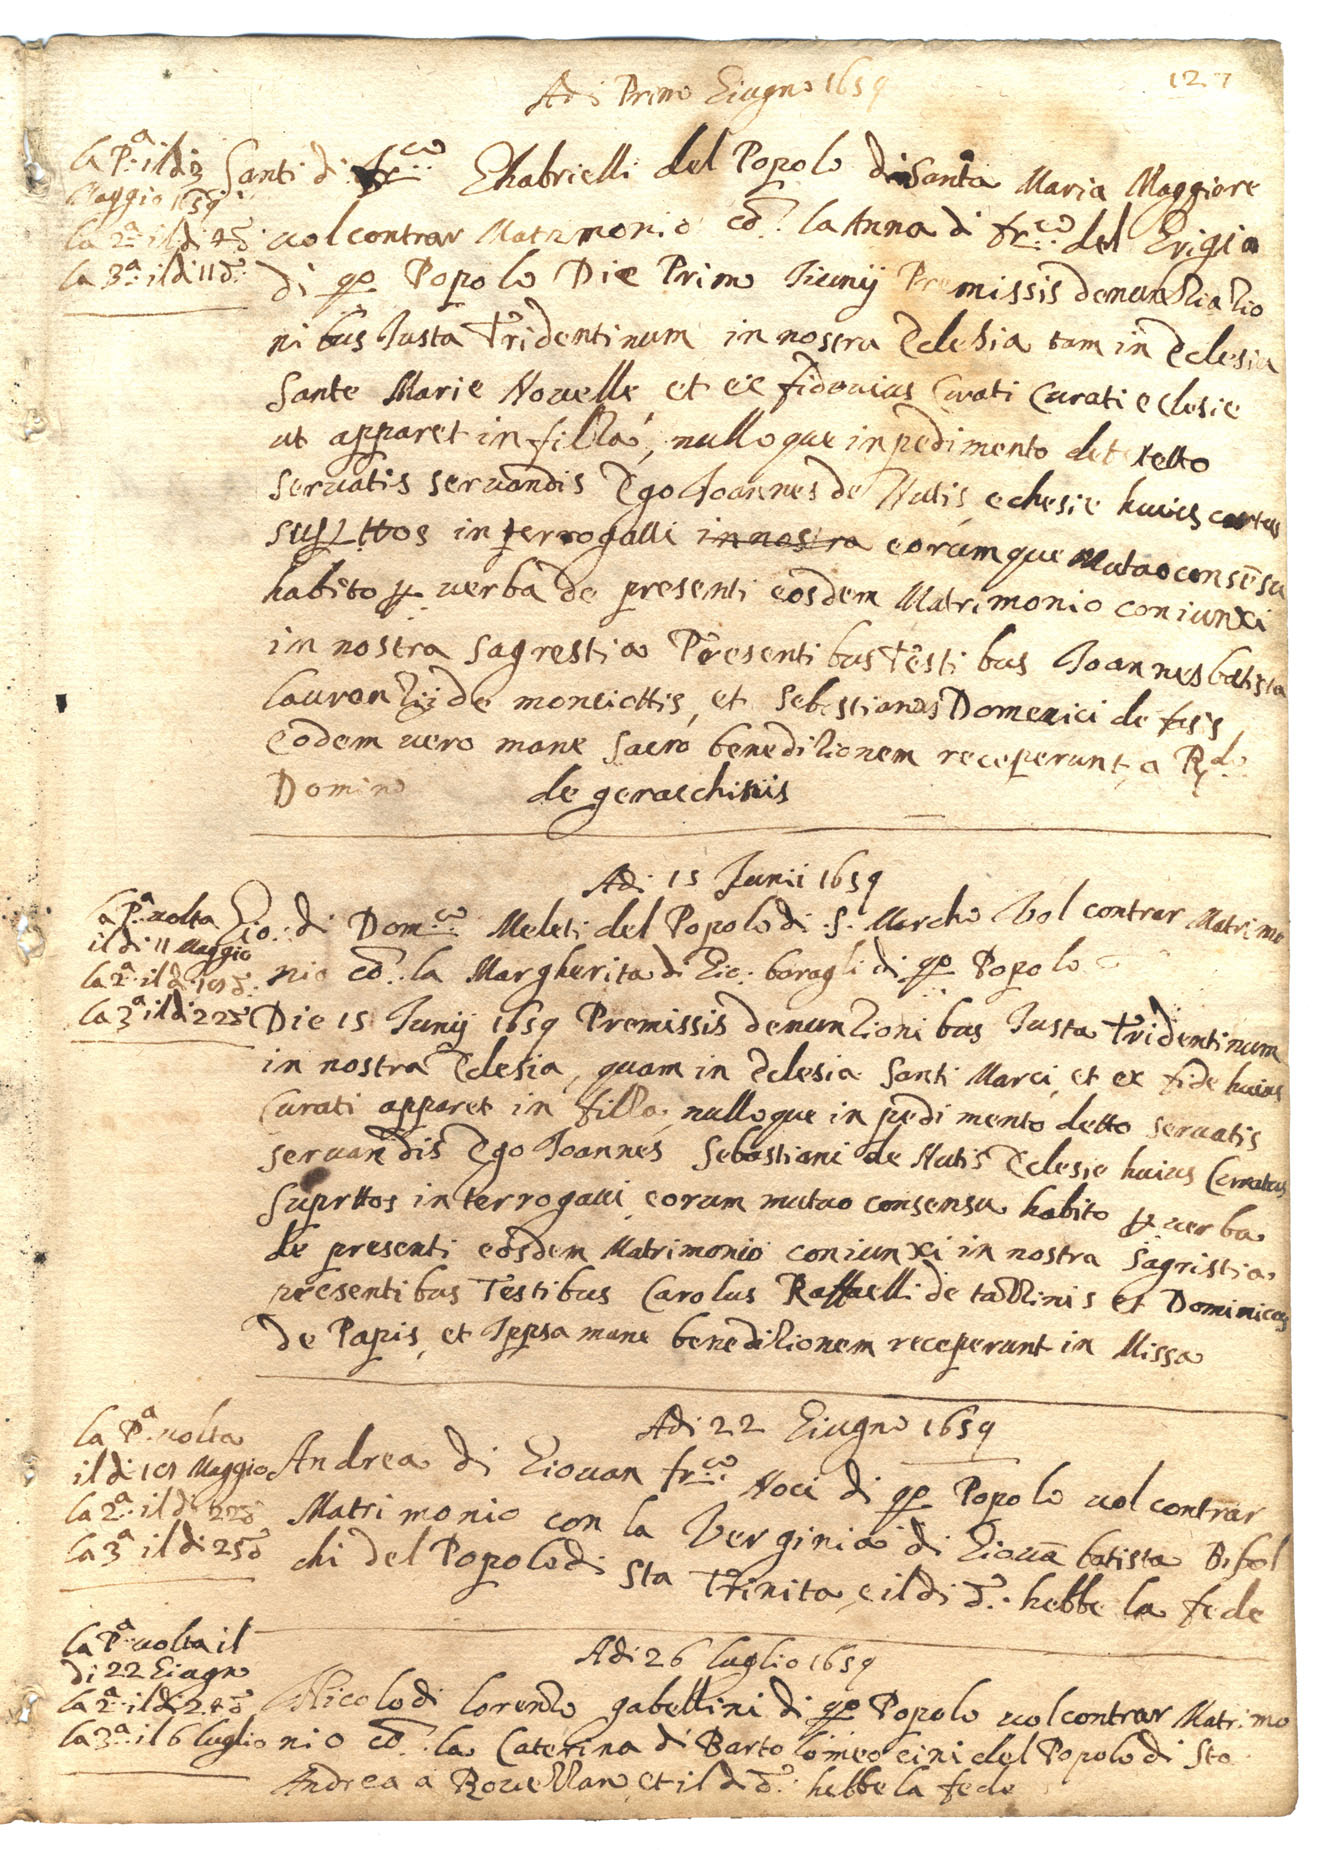 127
Adi Primo Giugno 1659
la Pª il di 3
Maggio 1659
la 2ª il di 4 dº
la 3ª il di 11 dº
Santi di frcº Ghabrielli del Popolo di Santa Maria Maggiore
vol contrar Matrimonio cō la Anna di frcº del Grigia
di qo Popolo Die Primo Junij Premissis denuntiatio
nibus Justa Tridentinum in nostra Eclesia tam in Eclesia
Sante Marie Novelle et ex Curati eclesie
ut apparet in filza, nulloque inpedimento detetto
servatis servandis Ego Joannes de Nutis echesie huius
interrogavi in nostra eorumque Mutao consēsu
habito p verba de presenti eosdem Matrimonio coniunxi
in nostra sagrestia Presentibus Testibus Joannes batista
laurentij de monciottis, et Sebastianus Domenici de fusis
Eodem vero mane Sacro beneditionem receperunt, a Rdo
Domino de geraechinis
Adi 15 Junii 1659
la Pª volta
il di 11 Maggio
la 2ª il di 19 dº
la 3ª il di 22 dº
Gio: di Domcº Meleti del Popolo di S. Marcho vol contrar Matrimo
nio cō la Margherita di Gio: boragli di qo Popolo
Die 15 Junij 1659 Premissis denuntionibus Justa Tridentinum
in nostra Eclesia, quam in Eclesia Santi Marci, et ex fide huius
Curati apparet in filza, nulloque in pedimento detto servatis
servandis Ego Joannes Sebastiani de Nutis Eclesie huius Curatus
Suprttos interrogavi, eorum mutuo consensu habito p verba
de presenti eosdem Matrimonio coniunxi in nostra Sagristia
presentibus Testibus Carolus Raffaelli de tallinis et Dominicus
de Papis, et Ippsa mane beneditionem receperunt in Missa
Adi 22 Giugno 1659
la Pª volta
il di 19 Maggio
la 2ª il di 22 dº
la 3ª il di 25 dº
Andrea di Giovan frcº Noci di qo Popolo vol contrar
Matrimonio con la Verginia di Giovā batista Bibol
chi del Popolo di Sta Trinita, e il di dº hebbe la fede
Adi 26 luglio 1659
la Pª volta il
di 22 Giugno
la 2ª il di 24 dº
la 3ª il 6 luglio
Nicolo di lorenzo gabellini di qo Popolo vol contrar Matrimo
nio cō la Caterina di Bartolomeo cini del Popolo di Sto
Andrea a Rovezzano, et il di dº hebbe la fede